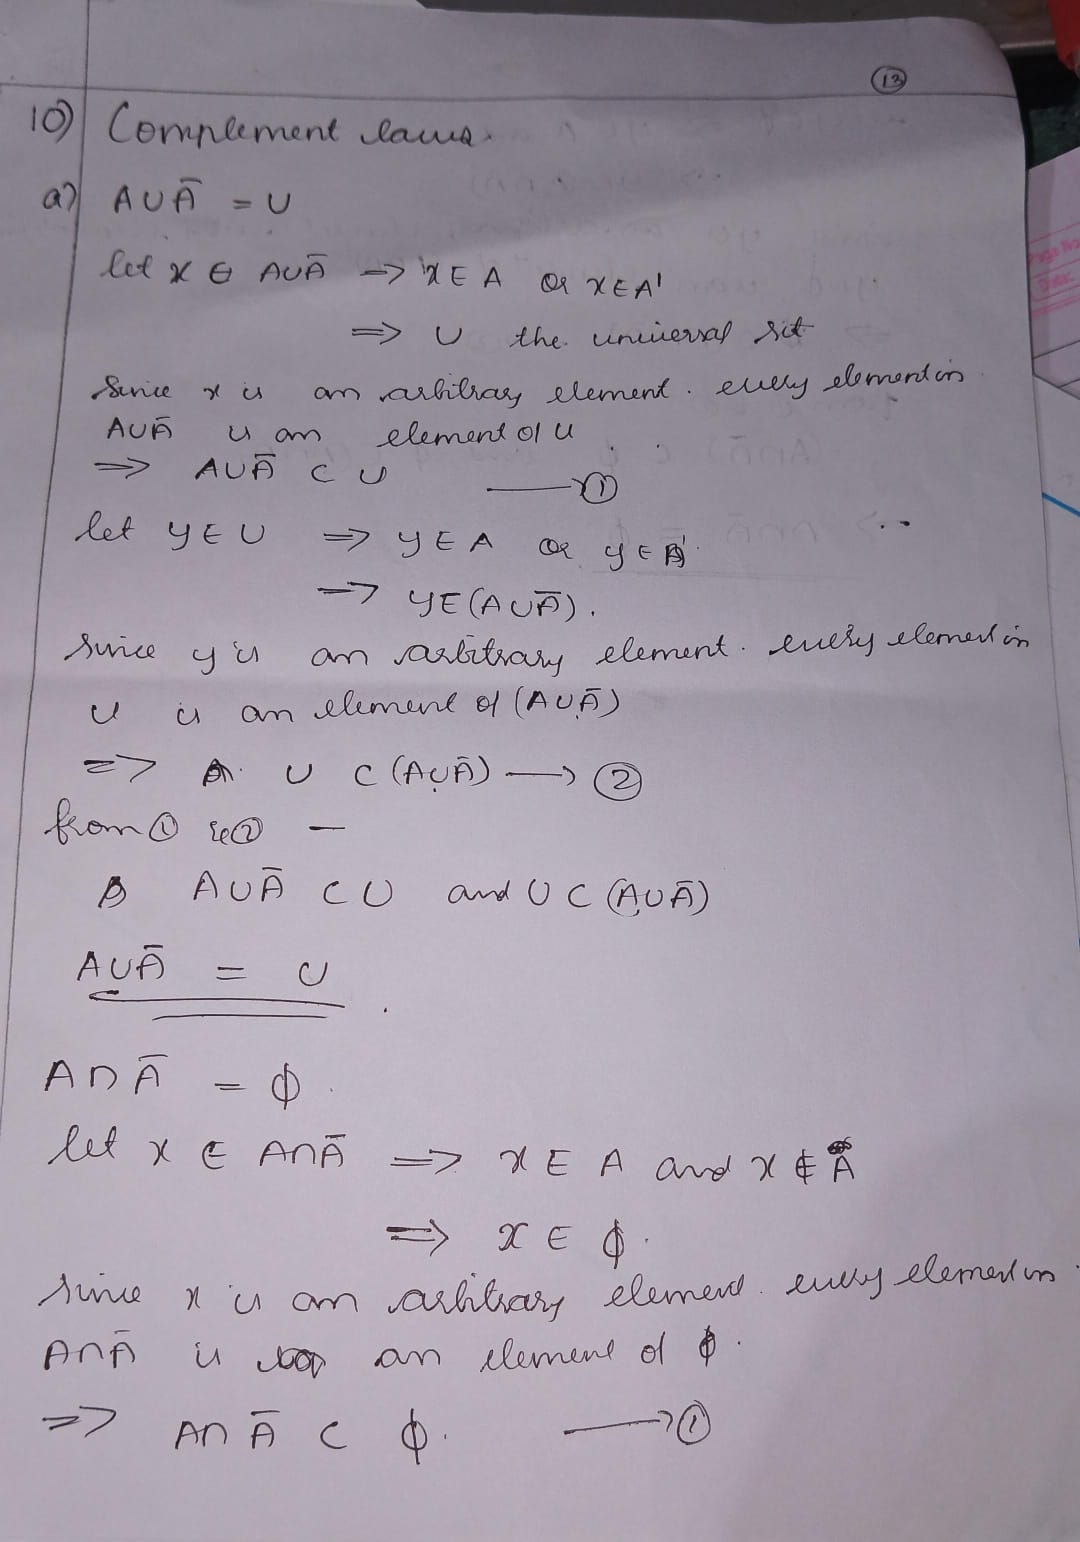 13
10) Complement laws.
a) A∪Ā = U
let x ∈ A∪Ā => x∈A or x∈A'
=> U the universal set
Since x is an arbitrary element. every element in
A∪Ā is an element of U
=> A∪Ā ⊂ U —> ①
let y∈U => y∈A or y∈A'
=> y∈(A∪Ā).
Since y is an arbitrary element. every element in
U is an element of (A∪Ā)
=> U ⊂ (A∪Ā) —> ②
from ① & ② —
A∪Ā ⊂ U and U ⊂ (A∪Ā)
A∪Ā = U
A∩Ā = ϕ.
let x ∈ A∩Ā => x∈A and x∉A
=> x∈ϕ.
Since x is an arbitrary element. every element in
A∩Ā is an element of ϕ.
=> A∩Ā ⊂ ϕ. —> ①